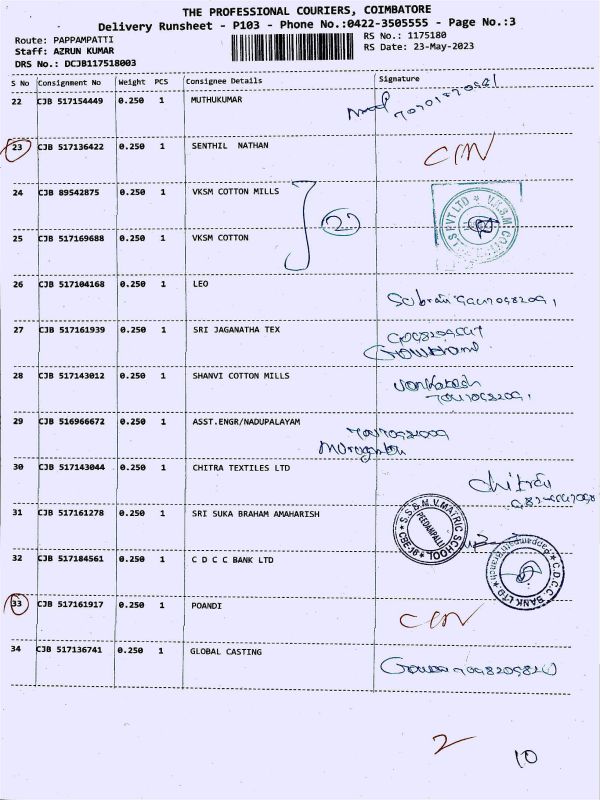 THE PROFESSIONAL COURIERS, COIMBATORE
Delivery Runsheet - P103 - Phone No.:0422-3505555 - Page No.:3
Route: PAPPAMPATTI
RS No.: 1175180
Staff: AZRUN KUMAR
RS Date: 23-May-2023
DRS No.: DCJB117518003
S No Consignment No Weight PCS Consignee Details Signature
22 CJB 517154449 0.250 1 MUTHUKUMAR
23 CJB 517136422 0.250 1 SENTHIL NATHAN
24 CJB 89542875 0.250 1 VKSM COTTON MILLS
2
25 CJB 517169688 0.250 1 VKSM COTTON
26 CJB 517104168 0.250 1 LEO
27 CJB 517161939 0.250 1 SRI JAGANATHA TEX
28 CJB 517143012 0.250 1 SHANVI COTTON MILLS
29 CJB 516966672 0.250 1 ASST.ENGR/NADUPALAYAM
30 CJB 517143044 0.250 1 CHITRA TEXTILES LTD
31 CJB 517161278 0.250 1 SRI SUKA BRAHAM AMAHARISH
S.S.B.M.V. MATRIC SCHOOL
PEEDAMPALLI
CBE-16
32 CJB 517184561 0.250 1 C D C C BANK LTD
C.D.C.C. BANK LTD
33 CJB 517161917 0.250 1 POANDI
34 CJB 517136741 0.250 1 GLOBAL CASTING
2
10